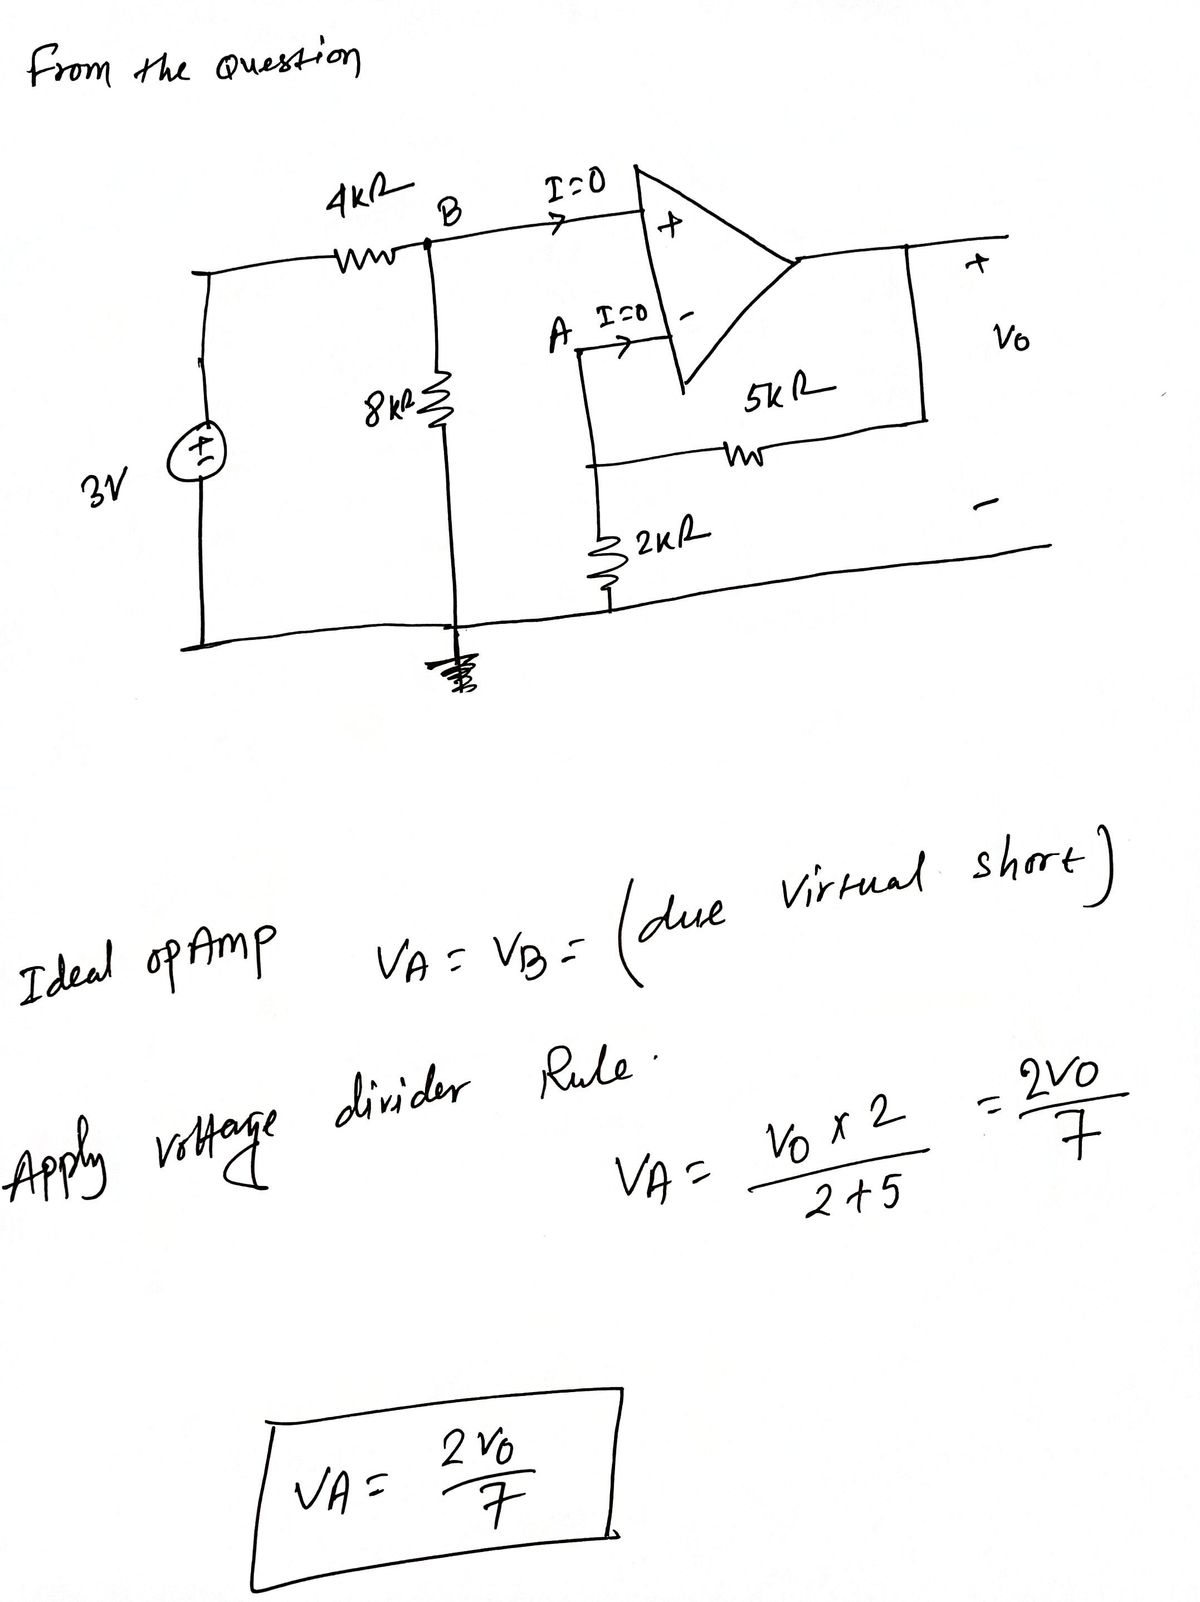 From the Question
4kΩ
B
I=0
+
A
I=0
-
+
Vo
8kΩ
5kΩ
+
-
3V
2kΩ
-
Ideal opAmp VA = VB = (due virtual short)
Apply voltage divider Rule.
VA = Vo x 2 / 2+5 = 2Vo / 7
VA = 2Vo / 7